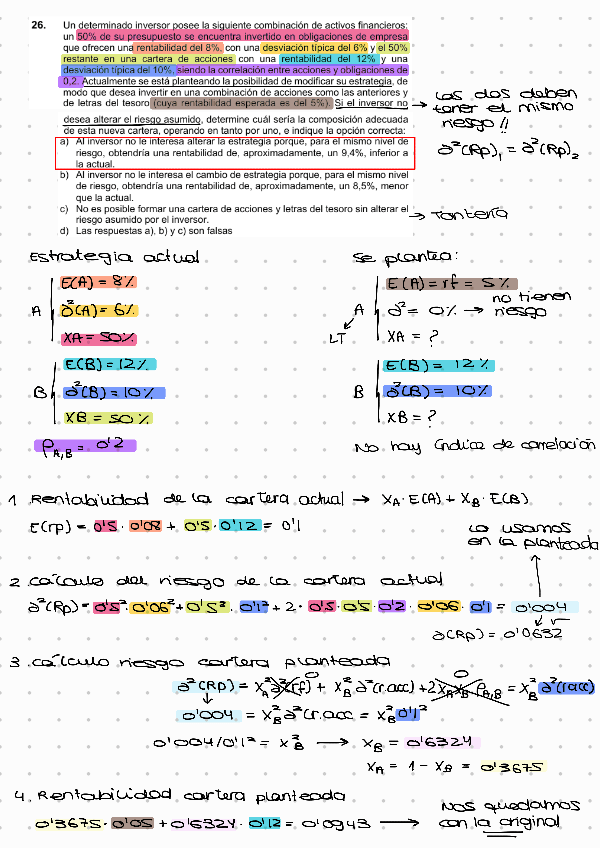 26. Un determinado inversor posee la siguiente combinación de activos financieros:
un 50% de su presupuesto se encuentra invertido en obligaciones de empresa
que ofrecen una rentabilidad del 8%, con una desviación típica del 6% y el 50%
restante en una cartera de acciones con una rentabilidad del 12% y una
desviación típica del 10%, siendo la correlación entre acciones y obligaciones de
0,2. Actualmente se está planteando la posibilidad de modificar su estrategia, de
modo que desea invertir en una combinación de acciones como las anteriores y
de letras del tesoro (cuya rentabilidad esperada es del 5%). Si el inversor no
desea alterar el riesgo asumido, determine cuál sería la composición adecuada
de esta nueva cartera, operando en tanto por uno, e indique la opción correcta:
a) Al inversor no le interesa alterar la estrategia porque, para el mismo nivel de
riesgo, obtendría una rentabilidad de, aproximadamente, un 9,4%, inferior a
la actual.
b) Al inversor no le interesa el cambio de estrategia porque, para el mismo nivel
de riesgo, obtendría una rentabilidad de, aproximadamente, un 8,5%, menor
que la actual.
c) No es posible formar una cartera de acciones y letras del tesoro sin alterar el
riesgo asumido por el inversor.
d) Las respuestas a), b) y c) son falsas
→ Las dos deben
tener el mismo
riesgo !!
∂²(Rp)₁ = ∂²(Rp)₂
→ Tontería
Estrategia actual
A
E(A) = 8%
∂²(A) = 6%
XA = 50%
B
E(B) = 12%
∂²(B) = 10%
XB = 50%
ρA,B = 0'2
Se plantea:
A
LT
E(A) = rf = 5%
∂² = 0% → no tienen
riesgo
XA = ?
B
E(B) = 12%
∂²(B) = 10%
XB = ?
No hay índice de correlación
1 Rentabilidad de la cartera actual → XA · E(A) + XB · E(B)
E(rp) = 0'5 · 0'08 + 0'5 · 0'12 = 0'1
Lo usamos
en la planteada
2 cálculo del riesgo de la cartera actual
∂²(Rp) = 0'5² · 0'06² + 0'5² · 0'1² + 2 · 0'5 · 0'5 · 0'2 · 0'06 · 0'1 = 0'004
∂(Rp) = 0'0632 √
3 cálculo riesgo cartera planteada
∂²(Rp) = X²A ∂²(rf) + X²B ∂²(r.acc) + 2XA XB ρA,B = X²B ∂²(racc)
0 0
0'004 = X²B ∂²(r.acc = X²B 0'1²
0'004/0'1² = X²B → XB = 0'6324
XA = 1 - XB = 0'3675
4. Rentabilidad cartera planteada
0'3675 · 0'05 + 0'6324 · 0'12 = 0'0943 → Nos quedamos
con la original